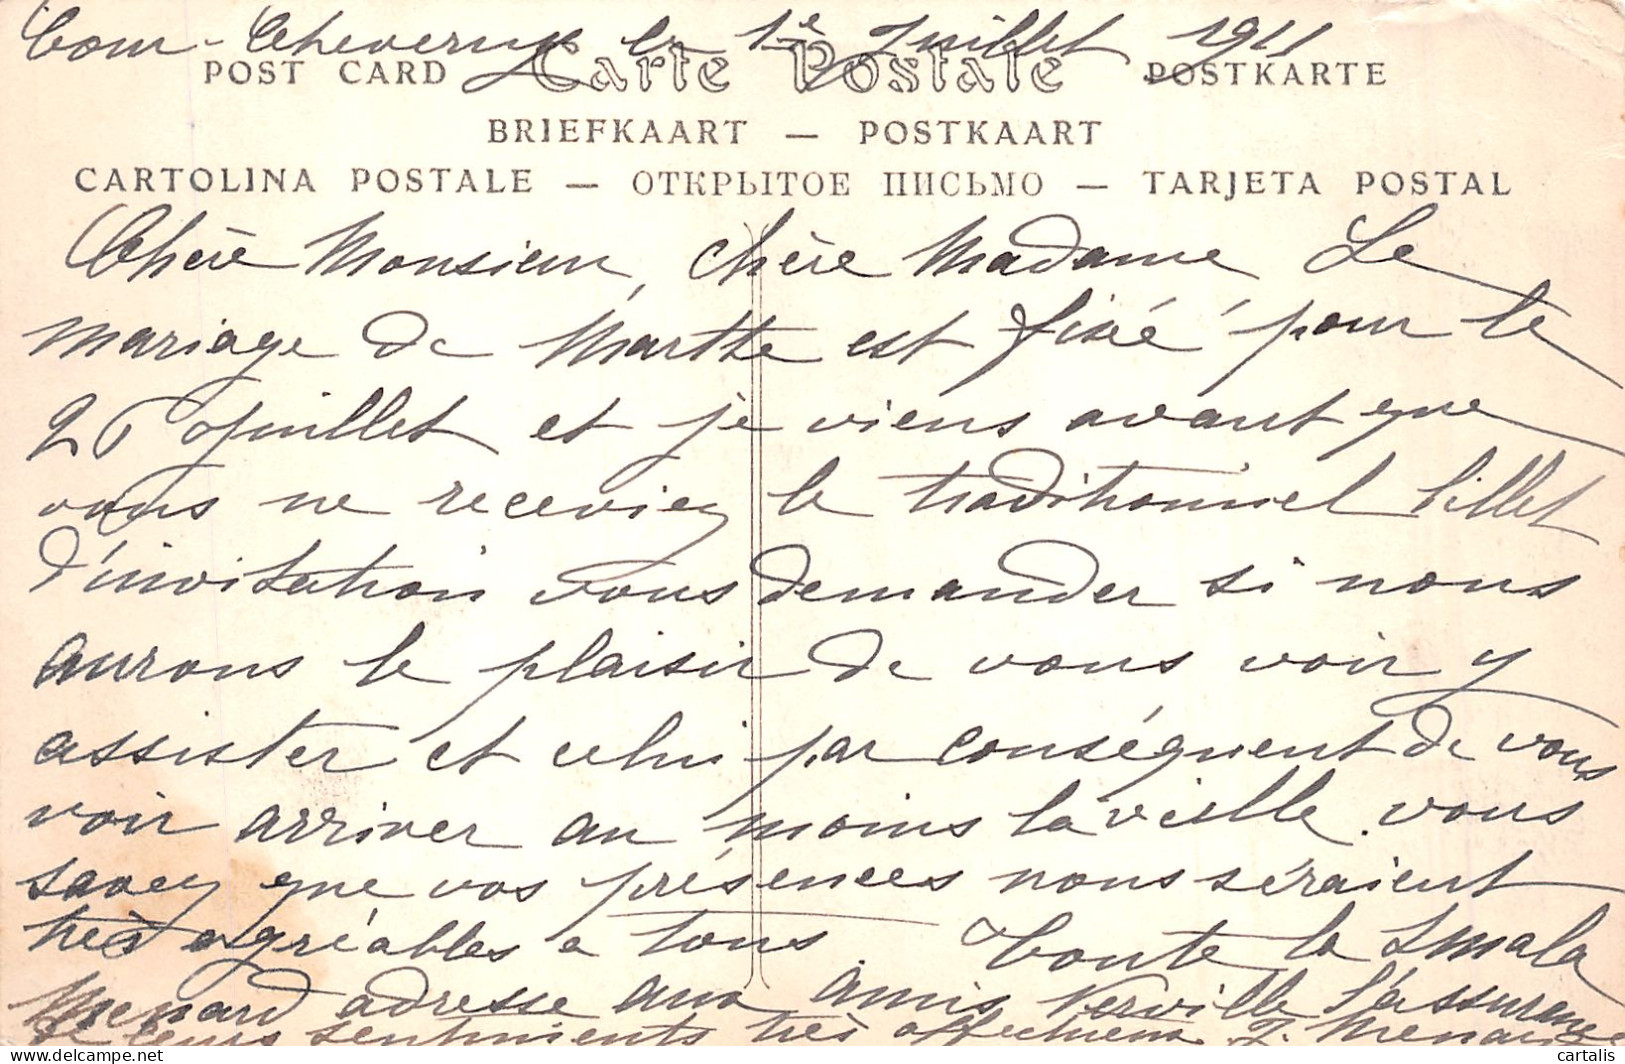 Cour-Cheverny le 1e Juillet 1911
POST CARD Carte Postale POSTKARTE
BRIEFKAART — POSTKAART
CARTOLINA POSTALE — ОТКРЫТОЕ ПИСЬМО — TARJETA POSTAL
Chère Monsieur, chère Madame Le
mariage de Marthe est fixé pour le
25 juillet et je viens avant que
vous ne receviez le traditionnel billet
d'invitation vous demander si nous
aurons le plaisir de vous voir y
assister et celui par conséquent de vous
voir arriver au moins la vielle. vous
savez que vos présences nous séraient
très agréables a tous Toute la Smala
Menard adresse aux amis Verville l'assurance
de leurs sentiments très affectueux J. Menard
cartalis